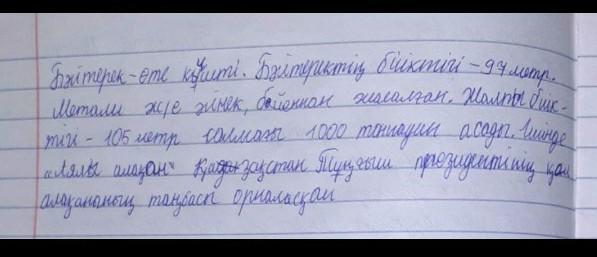 Бәйтерек-өте күшті. Бәйтеректің бііктігі - 97 метр.
Металл ж/е әйнек, бәйеннан жасалған. Жалпы біік-
тігі - 105 метр салмағы 1000 тоннадан асады. Ішінде
"Аялы алақан" Қазақстан Тұңғыш президентінің қол
алақанының таңбасы орналасқан